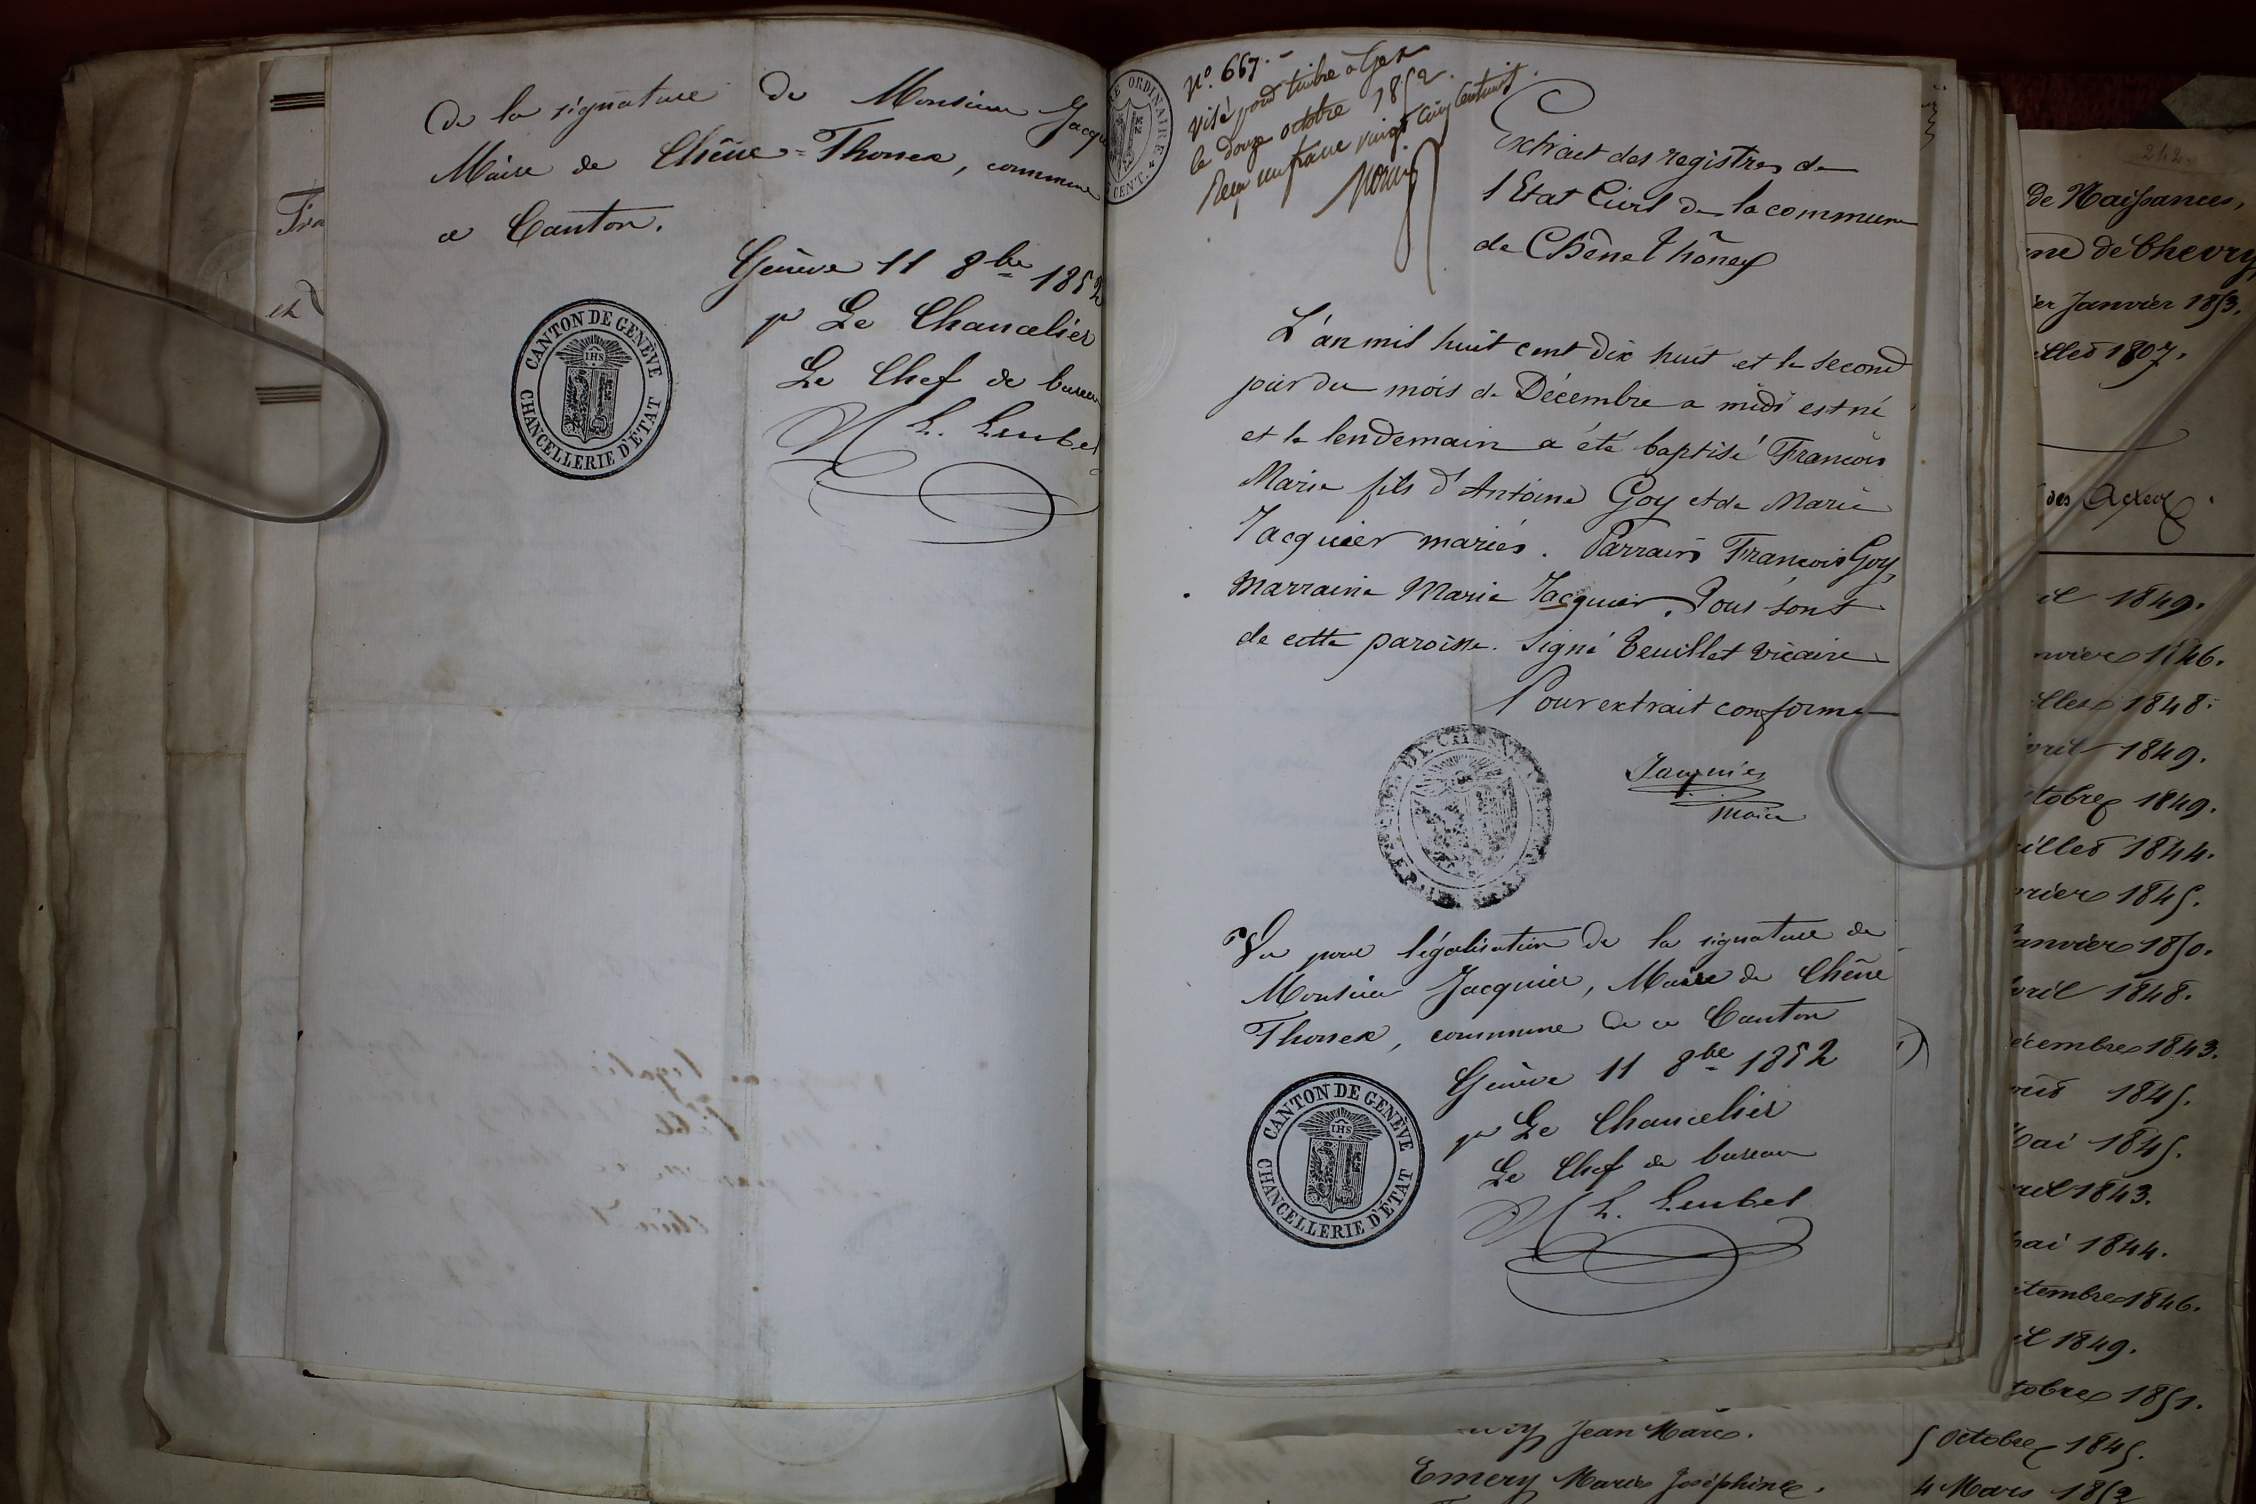 de la signature de Monsieur Jacqu
Maire de Chêne-Thonex, commune
ce Canton.
Genève 11 8bre 1852
pr Le Chancelier
Le Chef de bureau
L. Leubel
CANTON DE GENÈVE
IHS
CHANCELLERIE D'ÉTAT
ORDINAIRE
CENT.
No. 667.
Visé pour timbre à Gex
le douze octobre 1852.
Reçu un franc vingt cinq centimes.
Extrait des registres de
l'Etat Civil de la commune
de Chêne Thônex
L'an mil huit cent dix huit et le second
jour du mois de Décembre a midi est né
et le lendemain a été baptisé François
Marie fils d'Antoine Goy et de Marie
Jacquier mariés. Parrain François Goy,
Marraine Marie Jacquier. Tous sont
de cette paroisse. Signé Teuillet Vicaire
Pour extrait conforme
Jacquier
maire
Vu pour légalisation de la signature de
Monsieur Jacquier, Maire de Chêne
Thonex, commune de ce Canton
Genève 11 8bre 1852
pr Le Chancelier
Le Chef de bureau
L. Leubel
CANTON DE GENÈVE
IHS
CHANCELLERIE D'ÉTAT
242
de Naissances,
ne de Chevry
er Janvier 1853.
illet 1807.
des Actes
il 1849.
nvier 1846.
illet 1848.
vril 1849.
ctobre 1849.
uillet 1844.
vrier 1845.
anvier 1850.
vril 1848.
écembre 1843.
oût 1845.
Mai 1845.
ril 1843.
mai 1844.
ptembre 1846.
il 1849.
tobre 1851.
Jean Marc. 5 Octobre 1845.
Emery Marie Joséphine. 4 Mars 1852